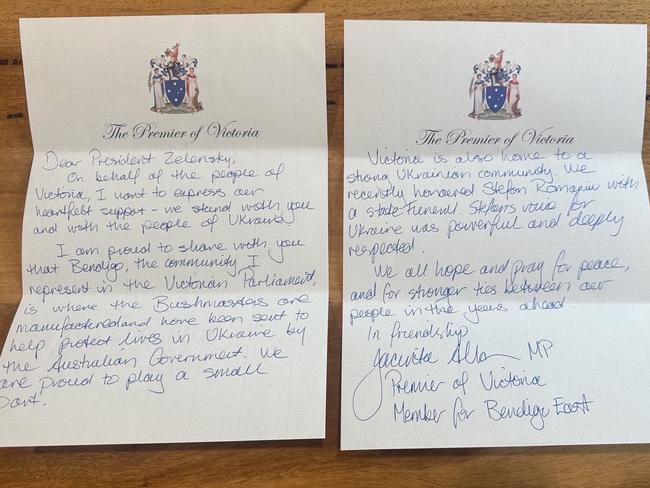 The Premier of Victoria
Dear President Zelensky,
On behalf of the people of
Victoria, I want to express our
heartfelt support - we stand with you
and with the people of Ukraine.
I am proud to share with you
that Bendigo, the community I
represent in the Victorian Parliament,
is where the Bushmasters are
manufactured and have been sent to
help protect lives in Ukraine by
the Australian Government. We
are proud to play a small
part.
The Premier of Victoria
Victoria is also home to a
strong Ukrainian community. We
recently honoured Stefan Romaniw with
a state funeral. Stefan's voice for
Ukraine was powerful and deeply
respected.
We all hope and pray for peace,
and for stronger ties between our
people in the years ahead.
In friendship
Jacinta Allan MP
Premier of Victoria
Member for Bendigo East